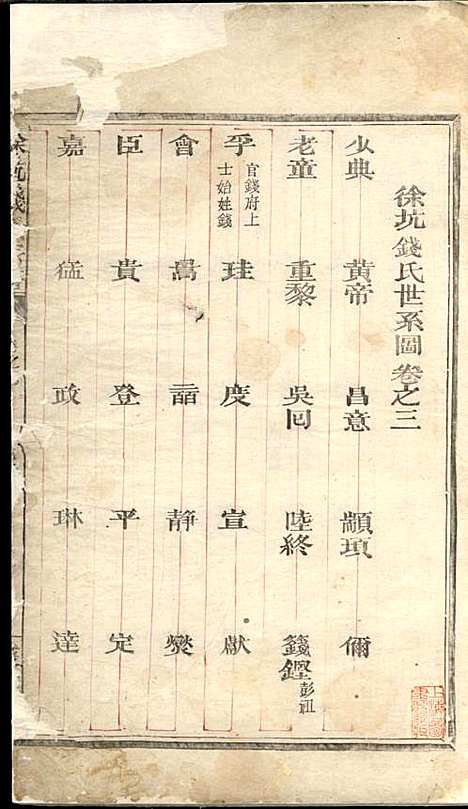 徐坑錢氏世系圖卷之三
少典 黃帝 昌意 顓頊 儞
老童 重黎 吳回 陸終 籛鏗 彭祖
孚 官錢府上士始姓錢 珪 度 宣 獻
會 萬 靜 爕
臣 貴 登 平 定
嘉 猛 政 琳 達